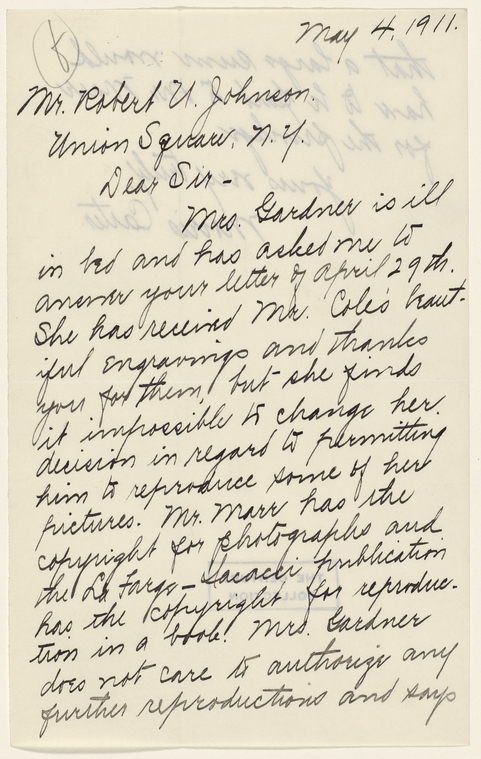 May 4, 1911.
Mr. Robert U. Johnson.
Union Square, N.Y.
Dear Sir -
Mrs. Gardner is ill
in bed and has asked me to
answer your letter of April 29th.
She has received Mr. Cole's beaut-
iful engravings and thanks
you for them, but she finds
it impossible to change her
decision in regard to permitting
him to reproduce some of her
pictures. Mr. Marr has the
copyright for photographs and
the La Farge - Jaccaci publication
has the copyright for reproduc-
tion in a book. Mrs. Gardner
does not care to authorize any
further reproductions and says